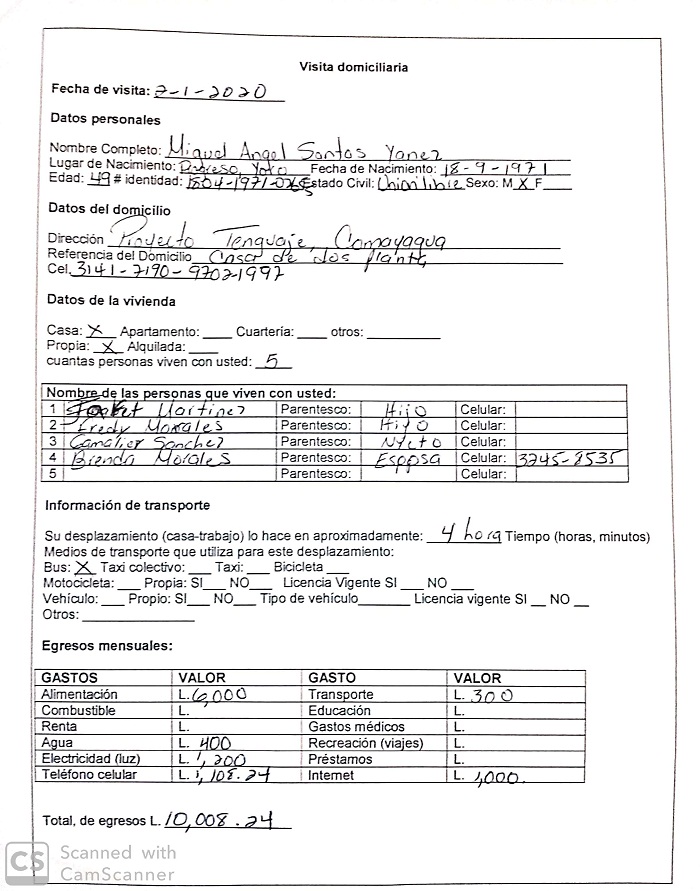 Visita domiciliaria
Fecha de visita: 7-1-2020
Datos personales
Nombre Completo: Miguel Angel Santos Yanez
Lugar de Nacimiento: Progreso, Yoro Fecha de Nacimiento: 18-9-1971
Edad: 49 # identidad: 1804-1971- Estado Civil: Union libre Sexo: M X F
Datos del domicilio
Dirección Proyecto Tenguaje, Comayagua
Referencia del Domicilio Casa de dos planta
Cel. 3141-7190-97021997
Datos de la vivienda
Casa: X Apartamento: Cuartería: otros:
Propia: X Alquilada:
cuantas personas viven con usted: 5
Nombre de las personas que viven con usted:
1 Martinez Parentesco: Hijo Celular:
2 Fredy Morales Parentesco: Hijo Celular:
3 Camalier Sanchez Parentesco: Nieto Celular:
4 Brenda Morales Parentesco: Esposa Celular: 3245-8535
5 Parentesco: Celular:
Información de transporte
Su desplazamiento (casa-trabajo) lo hace en aproximadamente: 4 hora Tiempo (horas, minutos)
Medios de transporte que utiliza para este desplazamiento:
Bus: X Taxi colectivo: Taxi: Bicicleta
Motocicleta: Propia: SI NO Licencia Vigente SI NO
Vehículo: Propio: SI NO Tipo de vehículo Licencia vigente SI NO
Otros:
Egresos mensuales:
GASTOS VALOR GASTO VALOR
Alimentación L. 6,000 Transporte L. 300
Combustible L. Educación L.
Renta L. Gastos médicos L.
Agua L. 400 Recreación (viajes) L.
Electricidad (luz) L. 1,200 Préstamos L.
Teléfono celular L. 1,108.24 Internet L. 1,000.
Total, de egresos L. 10,008.24
CS Scanned with
CamScanner